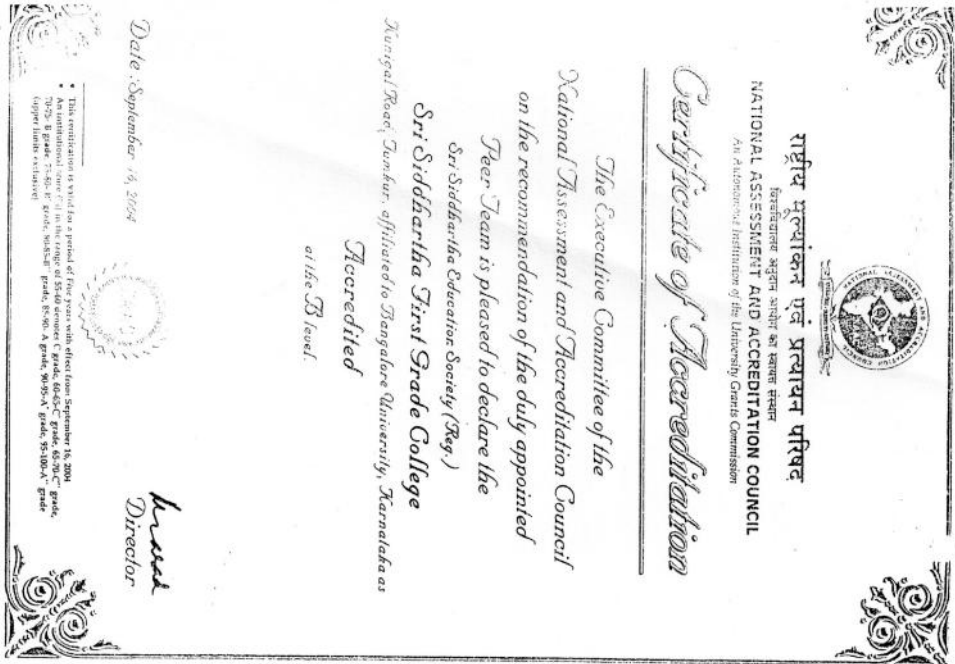 NATIONAL ASSESSMENT AND ACCREDITATION COUNCIL
राष्ट्रीय मूल्यांकन एवं प्रत्यायन परिषद
विश्वविद्यालय अनुदान आयोग का स्वायत्त संस्थान
NATIONAL ASSESSMENT AND ACCREDITATION COUNCIL
An Autonomous Institution of the University Grants Commission
Certificate of Accreditation
The Executive Committee of the
National Assessment and Accreditation Council
on the recommendation of the duly appointed
Peer Team is pleased to declare the
Sri Siddhartha Education Society (Reg.)
Sri Siddhartha First Grade College
Kunigal Road, Tumkur, affiliated to Bangalore University, Karnataka as
Accredited
at the B level.
Date : September 16, 2004
Director
• This certification is valid for a period of Five years with effect from September 16, 2004
• An institutional score (%) in the range of 55-60 denotes C grade, 60-65-C+ grade, 65-70-C++ grade,
70-75- B grade, 75-80- B+ grade, 80-85-B++ grade, 85-90- A grade, 90-95-A+ grade, 95-100-A++ grade
(upper limits exclusive)